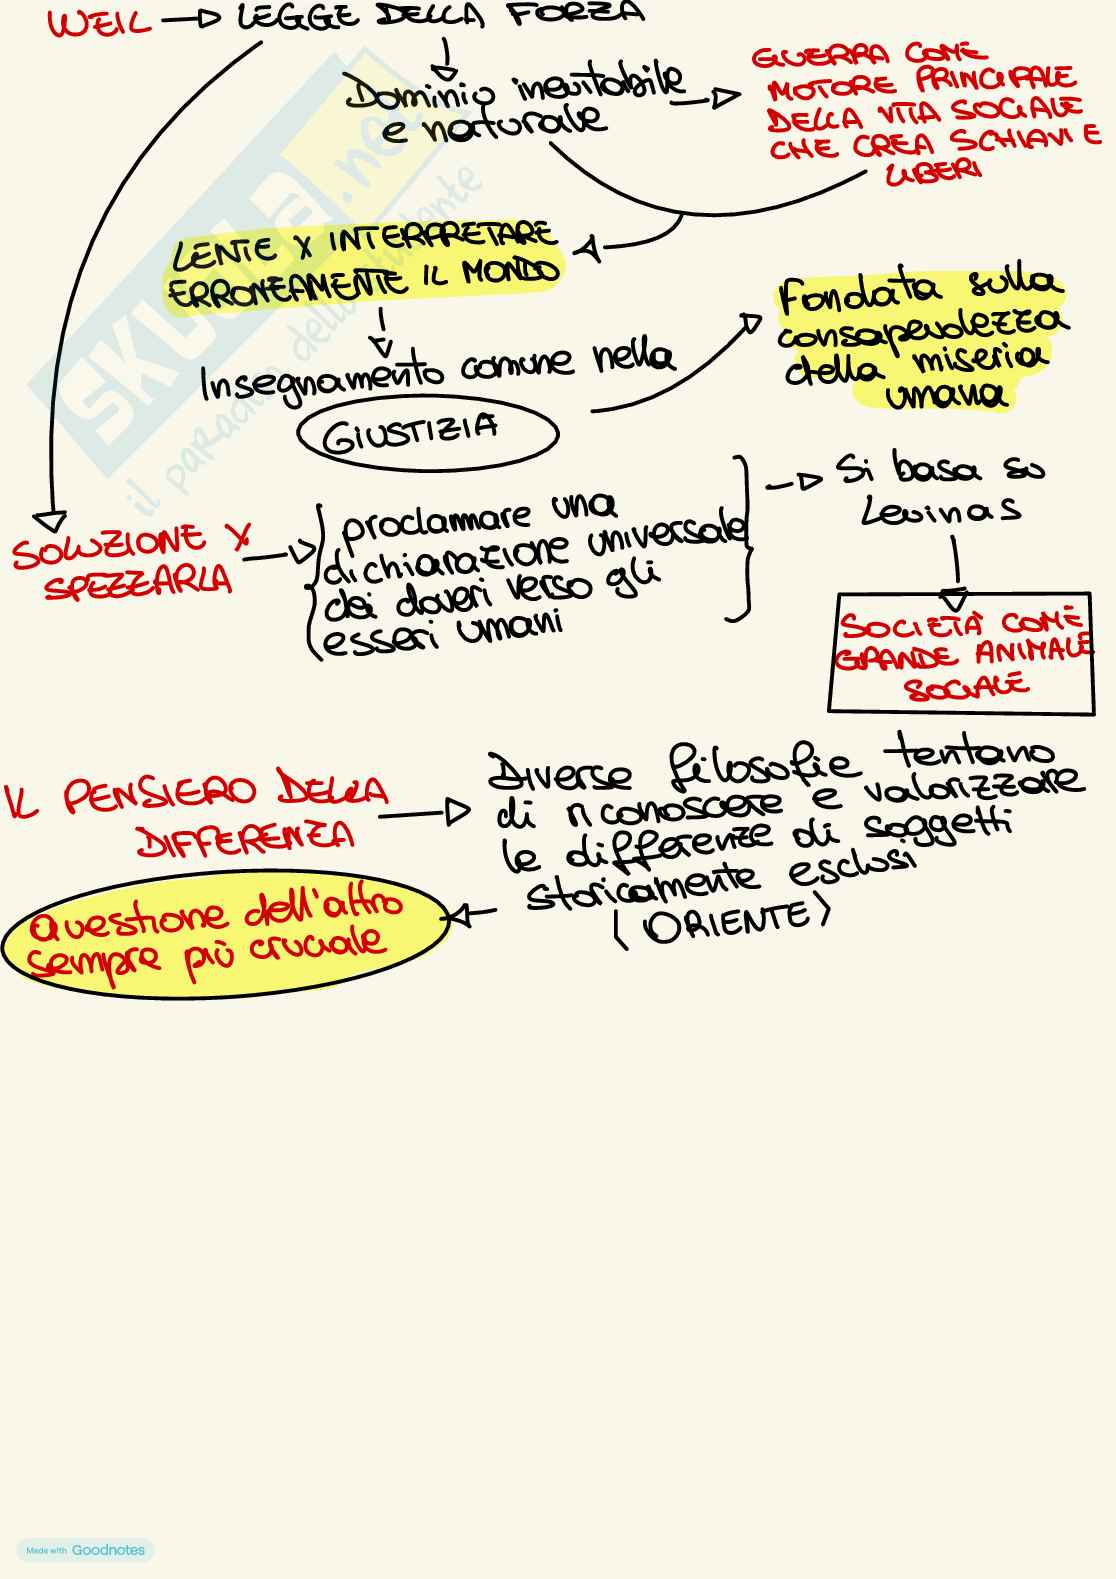 WEIL → LEGGE DELLA FORZA
Dominio inevitabile
e naturale
GUERRA COME
MOTORE PRINCIPALE
DELLA VITA SOCIALE
CHE CREA SCHIAVI E
LIBERI
LENTE X INTERPRETARE
ERRONEAMENTE IL MONDO
Insegnamento comune nella
GIUSTIZIA
Fondata sulla
consapevolezza
della miseria
umana
SOLUZIONE X
SPEZZARLA
proclamare una
dichiarazione universale
dei doveri verso gli
esseri umani
Si basa su
Levinas
SOCIETÀ COME
GRANDE ANIMALE
SOCIALE
IL PENSIERO DELLA
DIFFERENZA
Diverse filosofie tentano
di riconoscere e valorizzare
le differenze di soggetti
storicamente esclusi
(ORIENTE)
Questione dell'altro
sempre più cruciale
SKUOLA.net
il paradiso dello studente
Made with Goodnotes